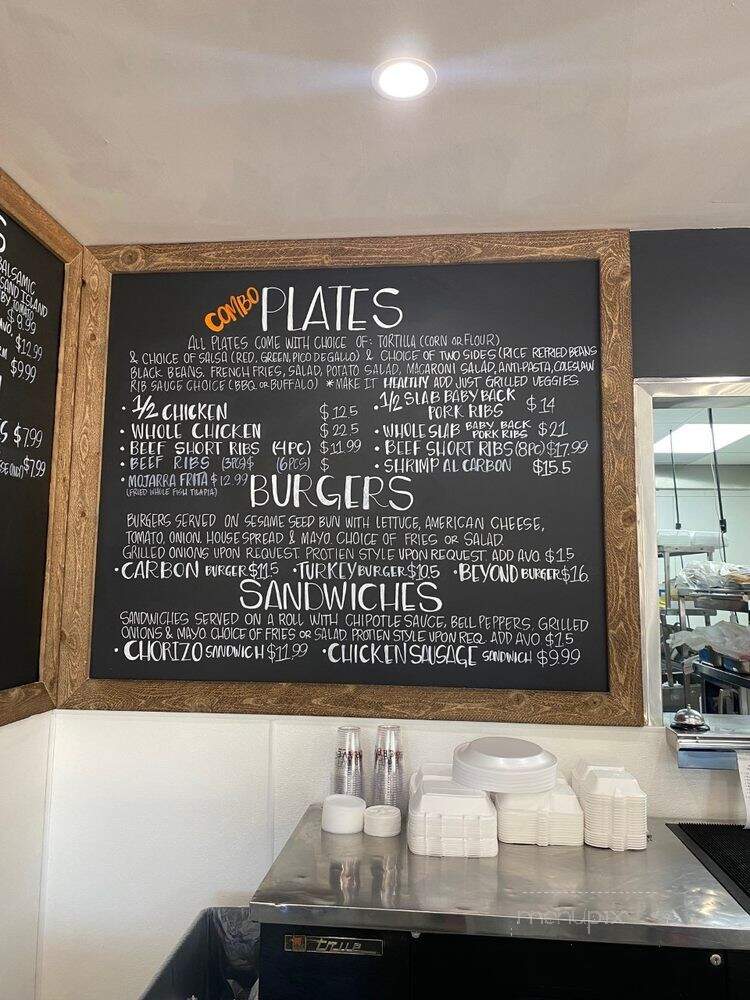 S
BALSAMIC
SAND ISLAND
BY TOMATO,
$8.99
AVO. $12.99
$9.99
$ $7.99
$7.99
COMBO PLATES
ALL PLATES COME WITH CHOICE OF: TORTILLA (CORN OR FLOUR)
& CHOICE OF SALSA (RED, GREEN, PICO DE GALLO) & CHOICE OF TWO SIDES (RICE REFRIED BEANS
BLACK BEANS, FRENCH FRIES, SALAD, POTATO SALAD, MACARONI SALAD, ANTI-PASTA, COLESLAW
RIB SAUCE CHOICE (BBQ OR BUFFALO) *MAKE IT HEALTHY ADD JUST GRILLED VEGGIES
• 1/2 CHICKEN $12.5
• WHOLE CHICKEN $22.5
• BEEF SHORT RIBS (4PC) $11.99
• BEEF RIBS (3PCS) $ (6PCS) $
• MOJARRA FRITA $12.99
(FRIED WHOLE FISH TILAPIA)
• 1/2 SLAB BABY BACK
PORK RIBS $14
• WHOLE SLAB BABY BACK PORK RIBS $21
• BEEF SHORT RIBS (8PC) $17.99
• SHRIMP AL CARBON $15.5
BURGERS
BURGERS SERVED ON SESAME SEED BUN WITH LETTUCE, AMERICAN CHEESE,
TOMATO, ONION, HOUSE SPREAD & MAYO. CHOICE OF FRIES OR SALAD
GRILLED ONIONS UPON REQUEST. PROTIEN STYLE UPON REQUEST. ADD AVO. $1.5
• CARBON BURGER $11.5 • TURKEY BURGER $10.5 • BEYOND BURGER $16.
SANDWICHES
SANDWICHES SERVED ON A ROLL WITH CHIPOTLE SAUCE, BELL PEPPERS, GRILLED
ONIONS & MAYO. CHOICE OF FRIES OR SALAD PROTIEN STYLE UPON REQ. ADD AVO $1.5
• CHORIZO SANDWICH $11.99 • CHICKEN SAUSAGE SANDWICH $9.99
menupix
True